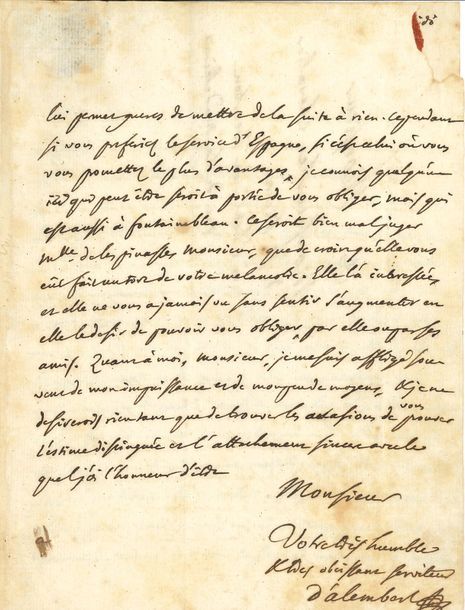 lui permet gueres de mettre de la suite à rien. cependant
si vous preferiés le service d'Espagne, si c'est celui où vous
vous promettez le plus d'avantages, je connois quelqu'un
ici qui peut être seroit à portée de vous obliger, mais qui
est aussi à fontainebleau. ce seroit bien mal juger
mlle de lespinasse, monsieur, que de croire qu'elle vous
eut fait un tort de votre melancolie. Elle l'a interessée
et elle ne vous a jamais vu sans sentir s'augmenter en
elle le desir de pouvoir vous obliger, par elle ou par ses
amis. Quant à moi, monsieur, je me suis affligé sou
vent de mon impuissance et de mon peu de moyens, et je ne
desirerois rien tant que de trouver les occasions de vous prouver
l'estime distinguée et l'attachement sincere avec le
quel j'ai l'honneur d'être
Monsieur
Votre très humble
et très obeissant serviteur
d'alembert